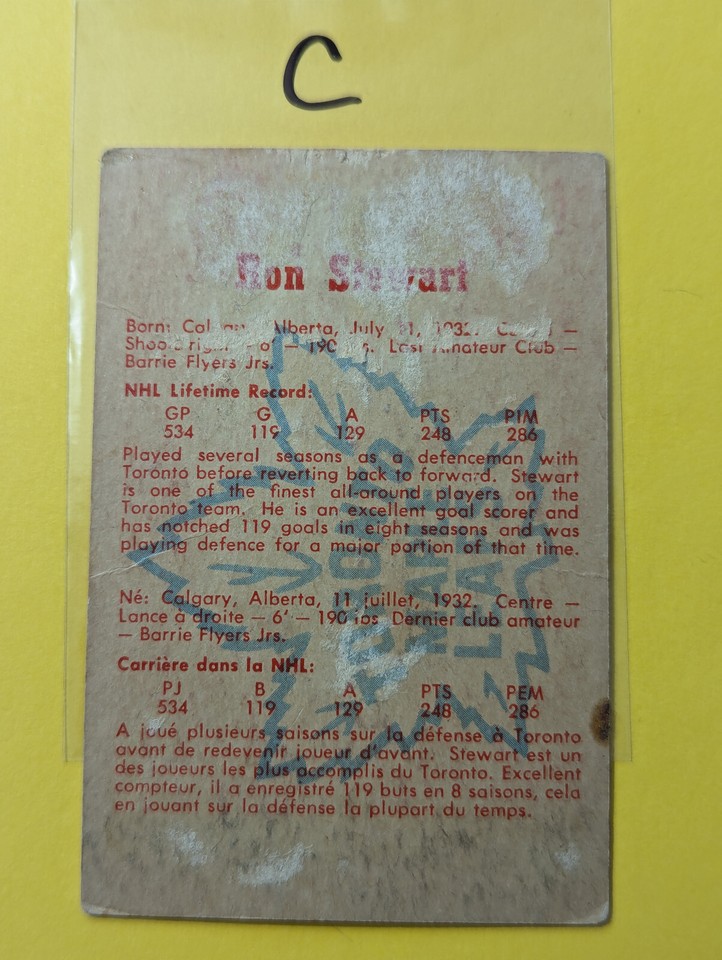 C
Ron Stewart
Born: Calgary, Alberta, July 11, 1932. Centre —
Shoots right — 6' — 190 lbs. Last Amateur Club —
Barrie Flyers Jrs.
NHL Lifetime Record:
GP G A PTS PIM
534 119 129 248 286
Played several seasons as a defenceman with
Toronto before reverting back to forward. Stewart
is one of the finest all-around players on the
Toronto team. He is an excellent goal scorer and
has notched 119 goals in eight seasons and was
playing defence for a major portion of that time.
Né: Calgary, Alberta, 11 juillet, 1932. Centre —
Lance à droite — 6' — 190 lbs Dernier club amateur
— Barrie Flyers Jrs.
Carrière dans la NHL:
PJ B A PTS PEM
534 119 129 248 286
A joué plusieurs saisons sur la défense à Toronto
avant de redevenir joueur d'avant. Stewart est un
des joueurs les plus accomplis du Toronto. Excellent
compteur, il a enregistré 119 buts en 8 saisons, cela
en jouant sur la défense la plupart du temps.
TORONTO
MAPLE
LEAF